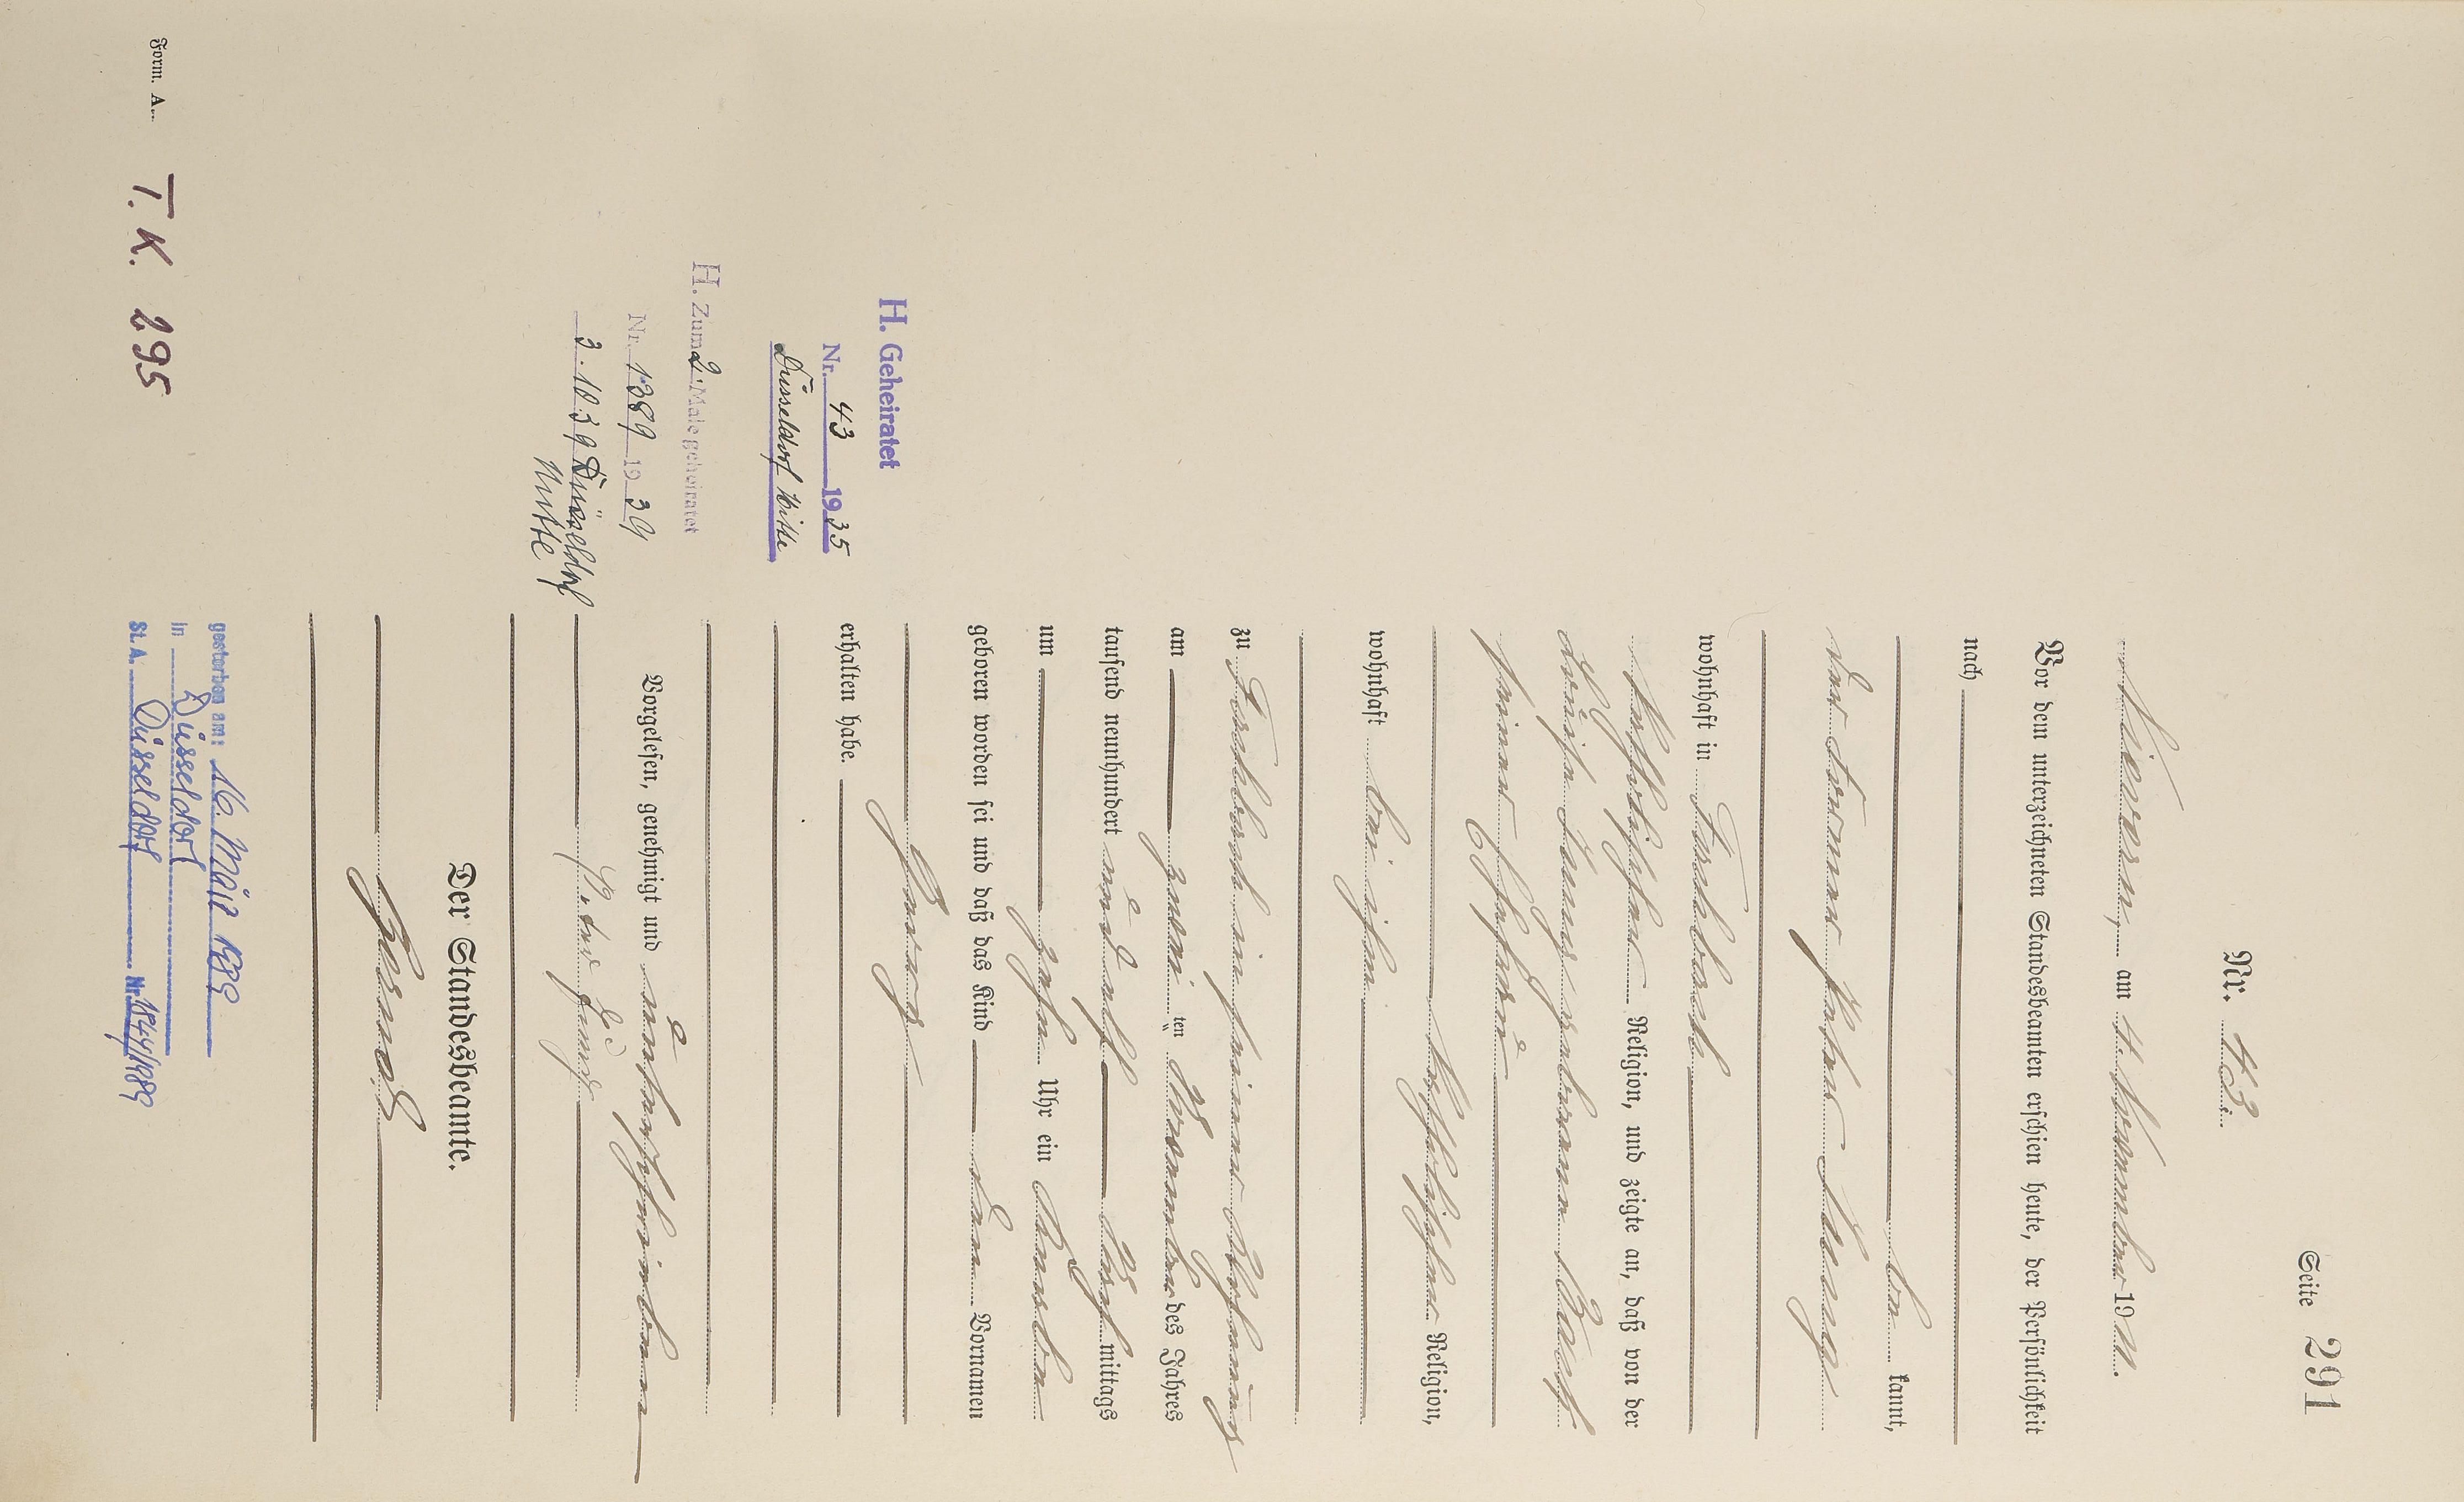 Seite 291
Nr. 43.
Nievern, am 4. November 1911.
Vor dem unterzeichneten Standesbeamten erschien heute, der Persönlichkeit
nach
be kannt,
der Former Peter
wohnhaft in Frücht
katholischer Religion, und zeigte an, daß von der
geborene
seiner Ehefrau
katholischer Religion,
wohnhaft bei ihm
zu in seiner Wohnung
am zwei ten November des Jahres
tausend neunhundert und elf Nach mittags
um zehn Uhr ein Knabe
geboren worden sei und daß das Kind den Vornamen
Georg
erhalten habe.
Vorgelesen, genehmigt und unterschrieben
Peter
Der Standesbeamte.
H. Geheiratet
Nr. 43 1935
Düsseldorf Mitte
H. Zum 2. Male geheiratet
Nr. 1389 1939
3.10.39 Düsseldorf
Mitte
gestorben am: 16. März 1989
in Düsseldorf
St. A. Düsseldorf Nr. 1844/1989
Form. A. T. K. 295